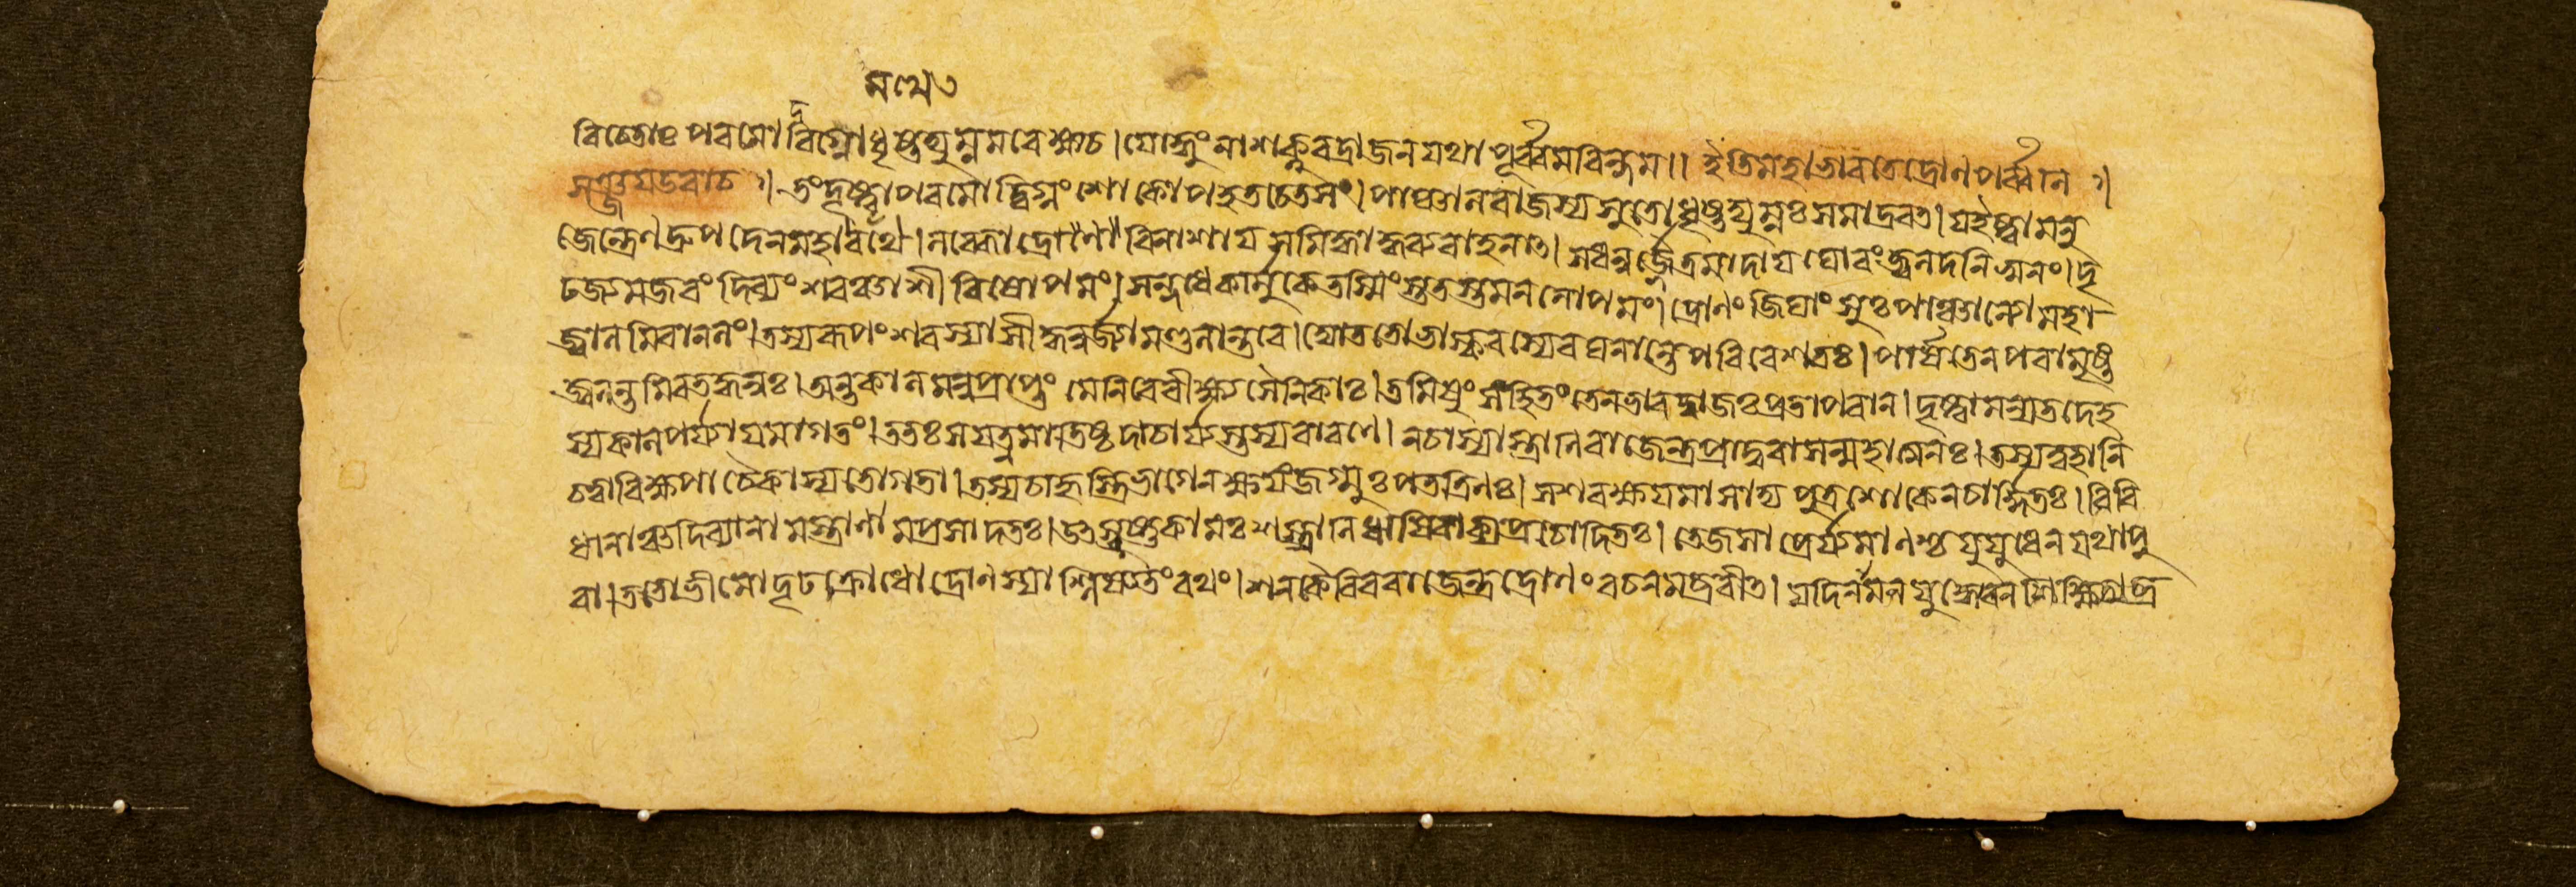 মধ্যে৩
বিচেতাঃ পৰমোদ্বিগ্নো ধৃষ্টদ্যুম্নমবেক্ষ্যচ। যোদ্ধুং নাশক্নুবদ্রাজন যথাপূর্ব্বমৰিন্দম॥ ইতিমহাভাৰতেদ্রোণপর্ব্বানি ৭।
সঞ্জয়উবাচ ৭। তংদৃষ্ট্বাপৰমোদ্বিগ্নং শোকোপহতচেতসং। পাঞ্চালৰাজস্যসুতোধৃষ্টদ্যুম্নঃ সমাদ্রবত। যইষ্ট্বামনু
জেন্দ্রেণ দ্রুপদেনমহামখে। লব্ধোদ্রোণবিনাশায সমিদ্ধাদ্ধব্যবাহনাৎ। সধনুর্জ্জৈত্রমাদায ঘোৰংজ্বলদনিস্বনং। দৃ
ঢজ্যমজৰং দিব্যং শৰঞ্চাশীবিষোপমং। সন্দধেকার্মুকেতস্মিংস্ততস্তমনলোপমং। দ্রোণং জিঘাংসুঃ পাঞ্চাল্যোমহা
জ্বালমিবানলং। তস্যৰূপং শৰস্যাসীদ্ধনুর্জ্যামণ্ডলান্তৰে। দ্যোততোভাস্কৰস্যেবঘনান্তেপৰিবেশতঃ। পার্ষতেনপৰামৃষ্ট
জ্বলন্তমিবতদ্ধনুঃ। অন্তকালমনুপ্রাপ্তং মেনিৰেবীক্ষ্য সৈনিকাঃ। তমিষুং সংহিতং তেনভাৰদ্বাজঃ প্রতাপবান। দৃষ্ট্বামন্যতদেহ
স্যকালপর্যাযমাগতং। ততঃ সযত্নমাতিষ্ঠদাচার্যস্তস্যবাৰণে। নচাস্যাস্ত্রানিৰাজেন্দ্রপ্রাদুৰাসন্মহাত্মনঃ। তস্যত্বহানি
চত্বাৰিক্ষপাচৈকাস্যতোগতা। তস্যচাহ্নস্ত্রিভাগেনক্ষযংজগ্মুঃ পতত্রিণঃ। সশৰক্ষযমাসাদ্য পুত্রশোকেনচার্দ্দিতঃ। বিবি
ধানাঞ্চদিব্যানামস্ত্রাণামপ্রসাদতঃ। উৎস্রষ্টুকামঃ শস্ত্রানি প্রচোদিতঃ। তেজসা প্রের্যমাণশ্চ যুযুধেন যথাপু
ৰা। ততোভীমোদৃঢক্রোধোদ্রোণস্যাশ্লিষ্যতংৰথং। শনকৈৰিবৰাজেন্দ্রদ্রোণং বচনমব্রবীৎ। যদিনামন